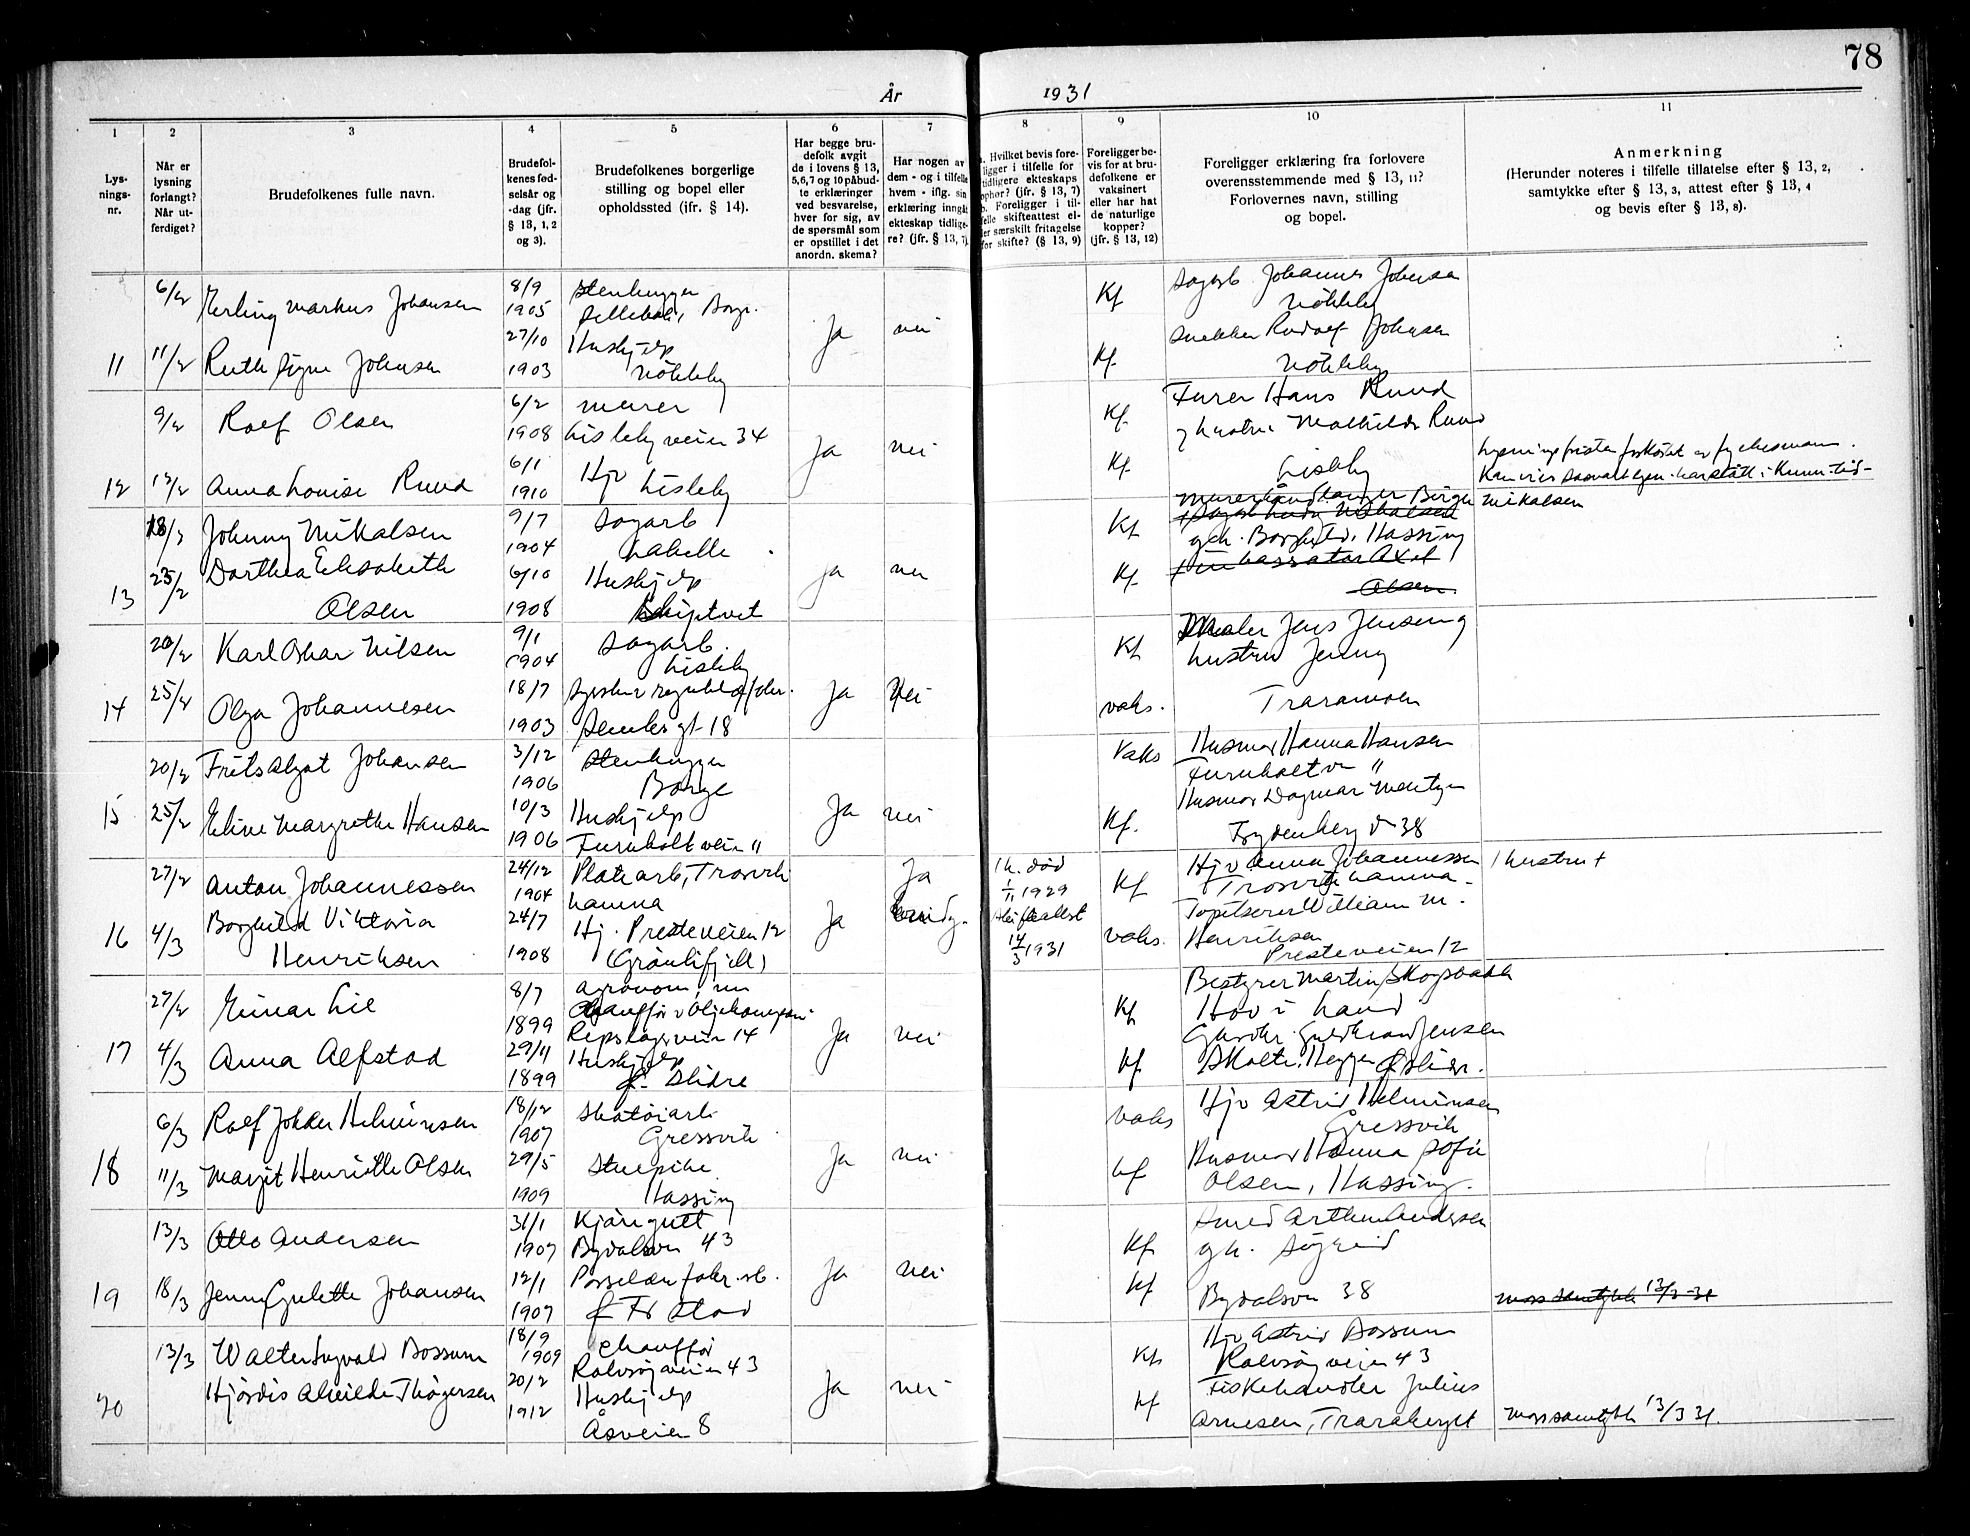 78
År 1931
1 2 3 4 5 6 7 8 9 10 11
Lys-
nings-
nr.
Når er
lysning
forlangt?
Når ut-
ferdiget?
Brudefolkenes fulle navn.
Brudefol-
kenes fød-
selsår og
-dag (jfr.
§ 13, 1, 2
og 3).
Brudefolkenes borgerlige
stilling og bopel eller
opholdssted (jfr. § 14).
Har begge bru-
defolk avgit
de i lovens § 13,
5,6,7 og 10 påbud-
te erklæringer
ved besvarelse,
hver for sig, av
de spørsmål som
er opstillet i det
anordn. skema?
Har nogen av
dem - og i tilfelle
hvem - iflg. sin
erklæring inngåt
ekteskap tidlige-
re? (jfr. § 13, 7)
. Hvilket bevis fore-
ligger i tilfelle for
tidligere ekteskaps
ophør? (jfr. § 13, 7)
b. Foreligger i til-
felle skifteattest el-
ler særskilt fritagelse
for skifte? (§ 13, 9)
Foreligger be-
vis for at bru-
defolkene er
vaksinert
eller har hat
de naturlige
kopper?
(jfr. § 13, 12)
Foreligger erklæring fra forlovere
overensstemmende med § 13, 11?
Forlovernes navn, stilling
og bopel.
Anmerkning
(Herunder noteres i tilfelle tillatelse efter § 13, 2,
samtykke efter § 13, 3, attest efter § 13, 4
og bevis efter § 13, 8).
11
6/2 Erling Markus Johansen 8/9 1905 Stenhugger
11/2 Ruth Signe Johnsen 27/10 1903 Hushjelp Nökleby
Ja nei
Kf Sagarb Johannes Johnsen Nökleby
Kf. Snekker Rudolf Johnsen Nökleby
12
9/2 Rolf Olsen 6/2 1908 Murer Lislebyveien 34
12/2 Anna Lovise Ruud 6/1 1910 Hjv Lisleby
Ja nei
Kf. Furer Hans Ruud
Kf. g hustru Mathilde Ruud Lisleby
13
18/2 Johnny Mikalsen 9/7 1904 Sagarb Labelle
23/2 Dorthea Elisabeth Olsen 6/10 1908 Hushjelp Skiptvet
Ja nei
Kf Murerhåndlanger Birger Mikalsen
gch. Borghild. Hassing
Kf. Axel Olsen
14
20/2 Karl Oskar Nilsen 9/1 1904 Sagarb. Lisleby
25/2 Olga Johannesen 18/7 1903
Ja Nei
Kf Maler Jens Jensen g
hustru Jenny
vaks. Traraveien
15
20/2 Frits Algot Johansen 3/12 1906 Stenhugger Borge
25/2 Eline Margrethe Hansen 10/3 1906 Hushjelp Furuholtveien 11
Ja nei
Vaks Husmor Hanna Hansen
Furuholtvn 11
Kf. Husmor Dagmar
Frydenberg v 38
16
27/2 Anton Johannessen 24/12 1904 Platearb, Trosvik
4/3 Borghild Viktoria Henriksen 24/7 1908 Hj. Presteveien 12
(Grönlifjell)
Ja Ja
1 h. död
1/11 1929
Skifteattest
14/3 1931
Kf Hjv Anna Johannessen 1 hustru +
vaks. William M.
Henriksen
Presteveien 12
17
27/2 Einar Lie 8/7 1899 Agronom, nu
Chauffør v Oljekompani
Repslagerveien 14
4/3 Anna Alfstad 29/11 1899 Hushjelp
f. Slidre
Ja nei
Kf Bestyrer Martin Skogsbakk
Hov i Land
Kf. Gårdbr. Guldbrand Jensen
18
6/3 Rolf Johan Helminsen 18/12 1907 Skotøiarb Gressvik
11/3 Margit Henriette Olsen 29/5 1909 Stuepike Hassing
Ja nei
vaks Hjv Astrid Helminsen
Gressvik
Kf Husmor Hanna Sofie
Olsen, Hassing.
19
13/3 Otto Andersen 31/1 1907 Kjöregutt
Bydalsvn 43
18/3 Jenny Gulette Johansen 12/1 1907 Porselensfabr.arb.
f Fr stad
Ja nei
Kf Smed Arthur Andersen
gh. Sigrid
Kf Bydalsvn 38
Mors samtykke 13/3-31
20
13/3 Walter Sigvald Bossum 18/9 1909 Chauffør
Rolvsøyveien 43
Hjördis Alvilde Thøgersen 20/2 1912 Hushjelp
Åsveien 8
Ja nei
Kf. Hjv Astrid Bossum
Rolvsøyveien 43
Kf Fiskehandler Julius
Arnesen, Traraberget Mors samtykke 13/3 31.